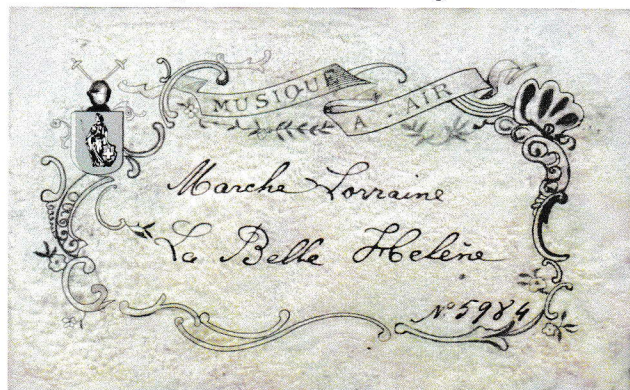 MUSIQUE
A AIR
Marche Lorraine
La Belle Helène
No 5984